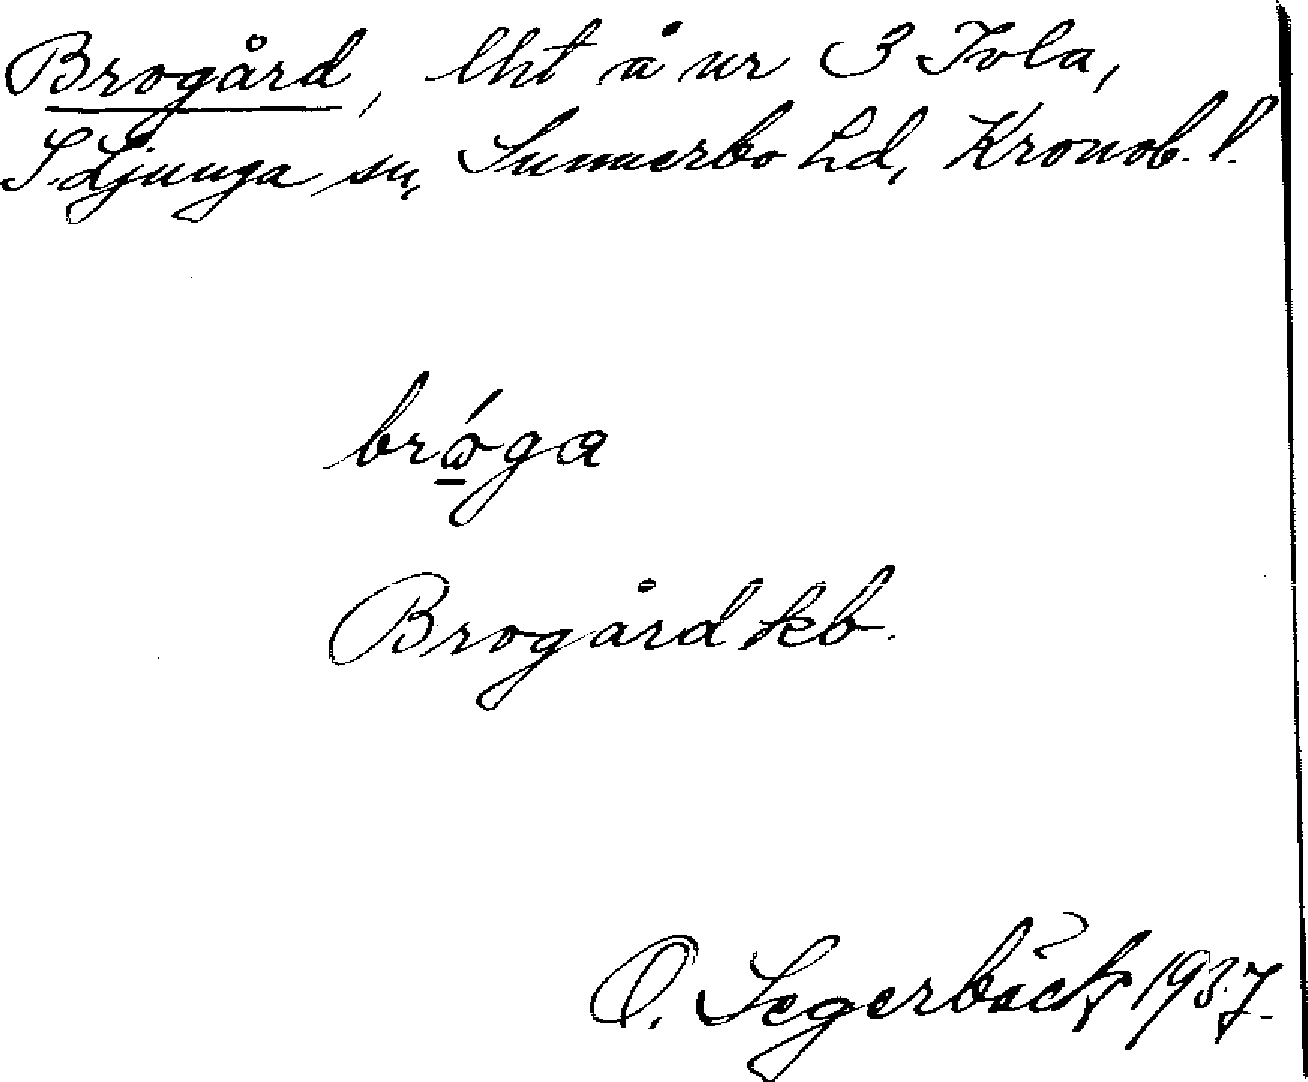 Brogård, lht å nr 3 Tvla,
S. Ljunga sn, Sunnerbo hd, Kronob. l.
brώ̱ga
Brogård kb.
O. Segerbäck 1937.